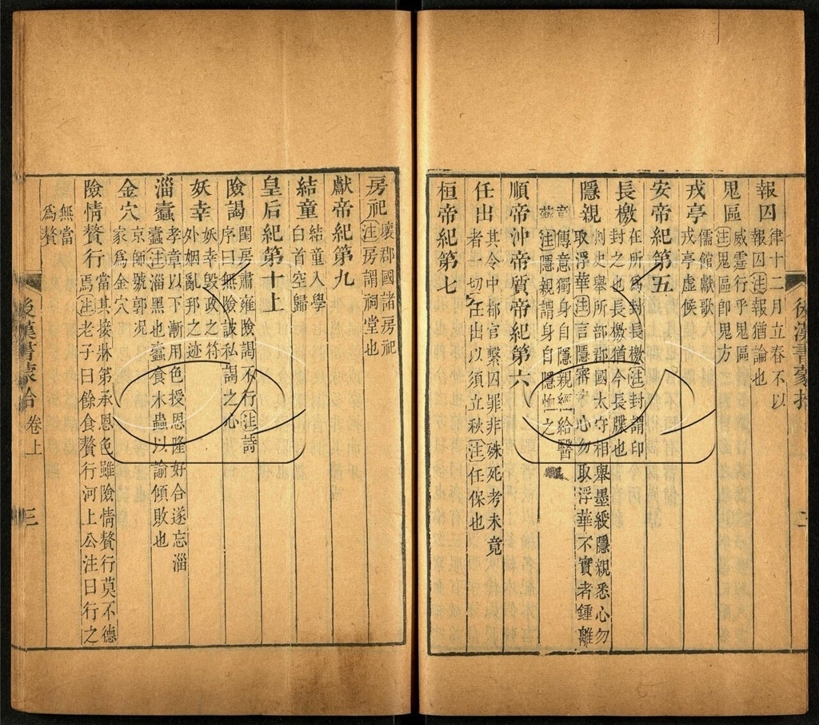 報囚
律十二月立春不以
報囚注報猶論也
鬼區
威霆行乎鬼區
注鬼區卽鬼方
戎亭
儒館獻歌
戎亭虛候
安帝紀第五
長檄
在所爲封長檄注封謂印
封之也長檄猶今長牒也
隱親
刺史舉所部郡國太守相舉墨綬隱親悉心勿
取浮華注言隱審 心勿取浮華不實者鍾離
意傳意獨身自隱親經給醫
藥注隱親謂身自隱恤之
順帝沖帝質帝紀第六
任出
其令中郡官繫囚罪非殊死考未竟
者一切任出以須立秋注任保也
桓帝紀第七
後漢書蒙拾
二
房祀
壞郡國諸房祀
注房謂祠堂也
獻帝紀第九
結童
結童入學
白首空歸
皇后紀第十上
險謁
閨房肅雍險謁不行注詩
序曰無險詖私謁之心
妖幸
妖幸毁政之符
外姻亂邦之迹
淄蠹
孝章以下漸用色授恩隆好合遂忘淄
蠹注淄黑也蠹食木蟲以諭傾敗也
金穴
京師號郭況
家爲金穴
險情贅行
當其接牀第承恩色雖險情贅行莫不德
焉注老子曰餘食贅行河上公注曰行之
無當
爲贅
後漢書蒙拾
卷上
三